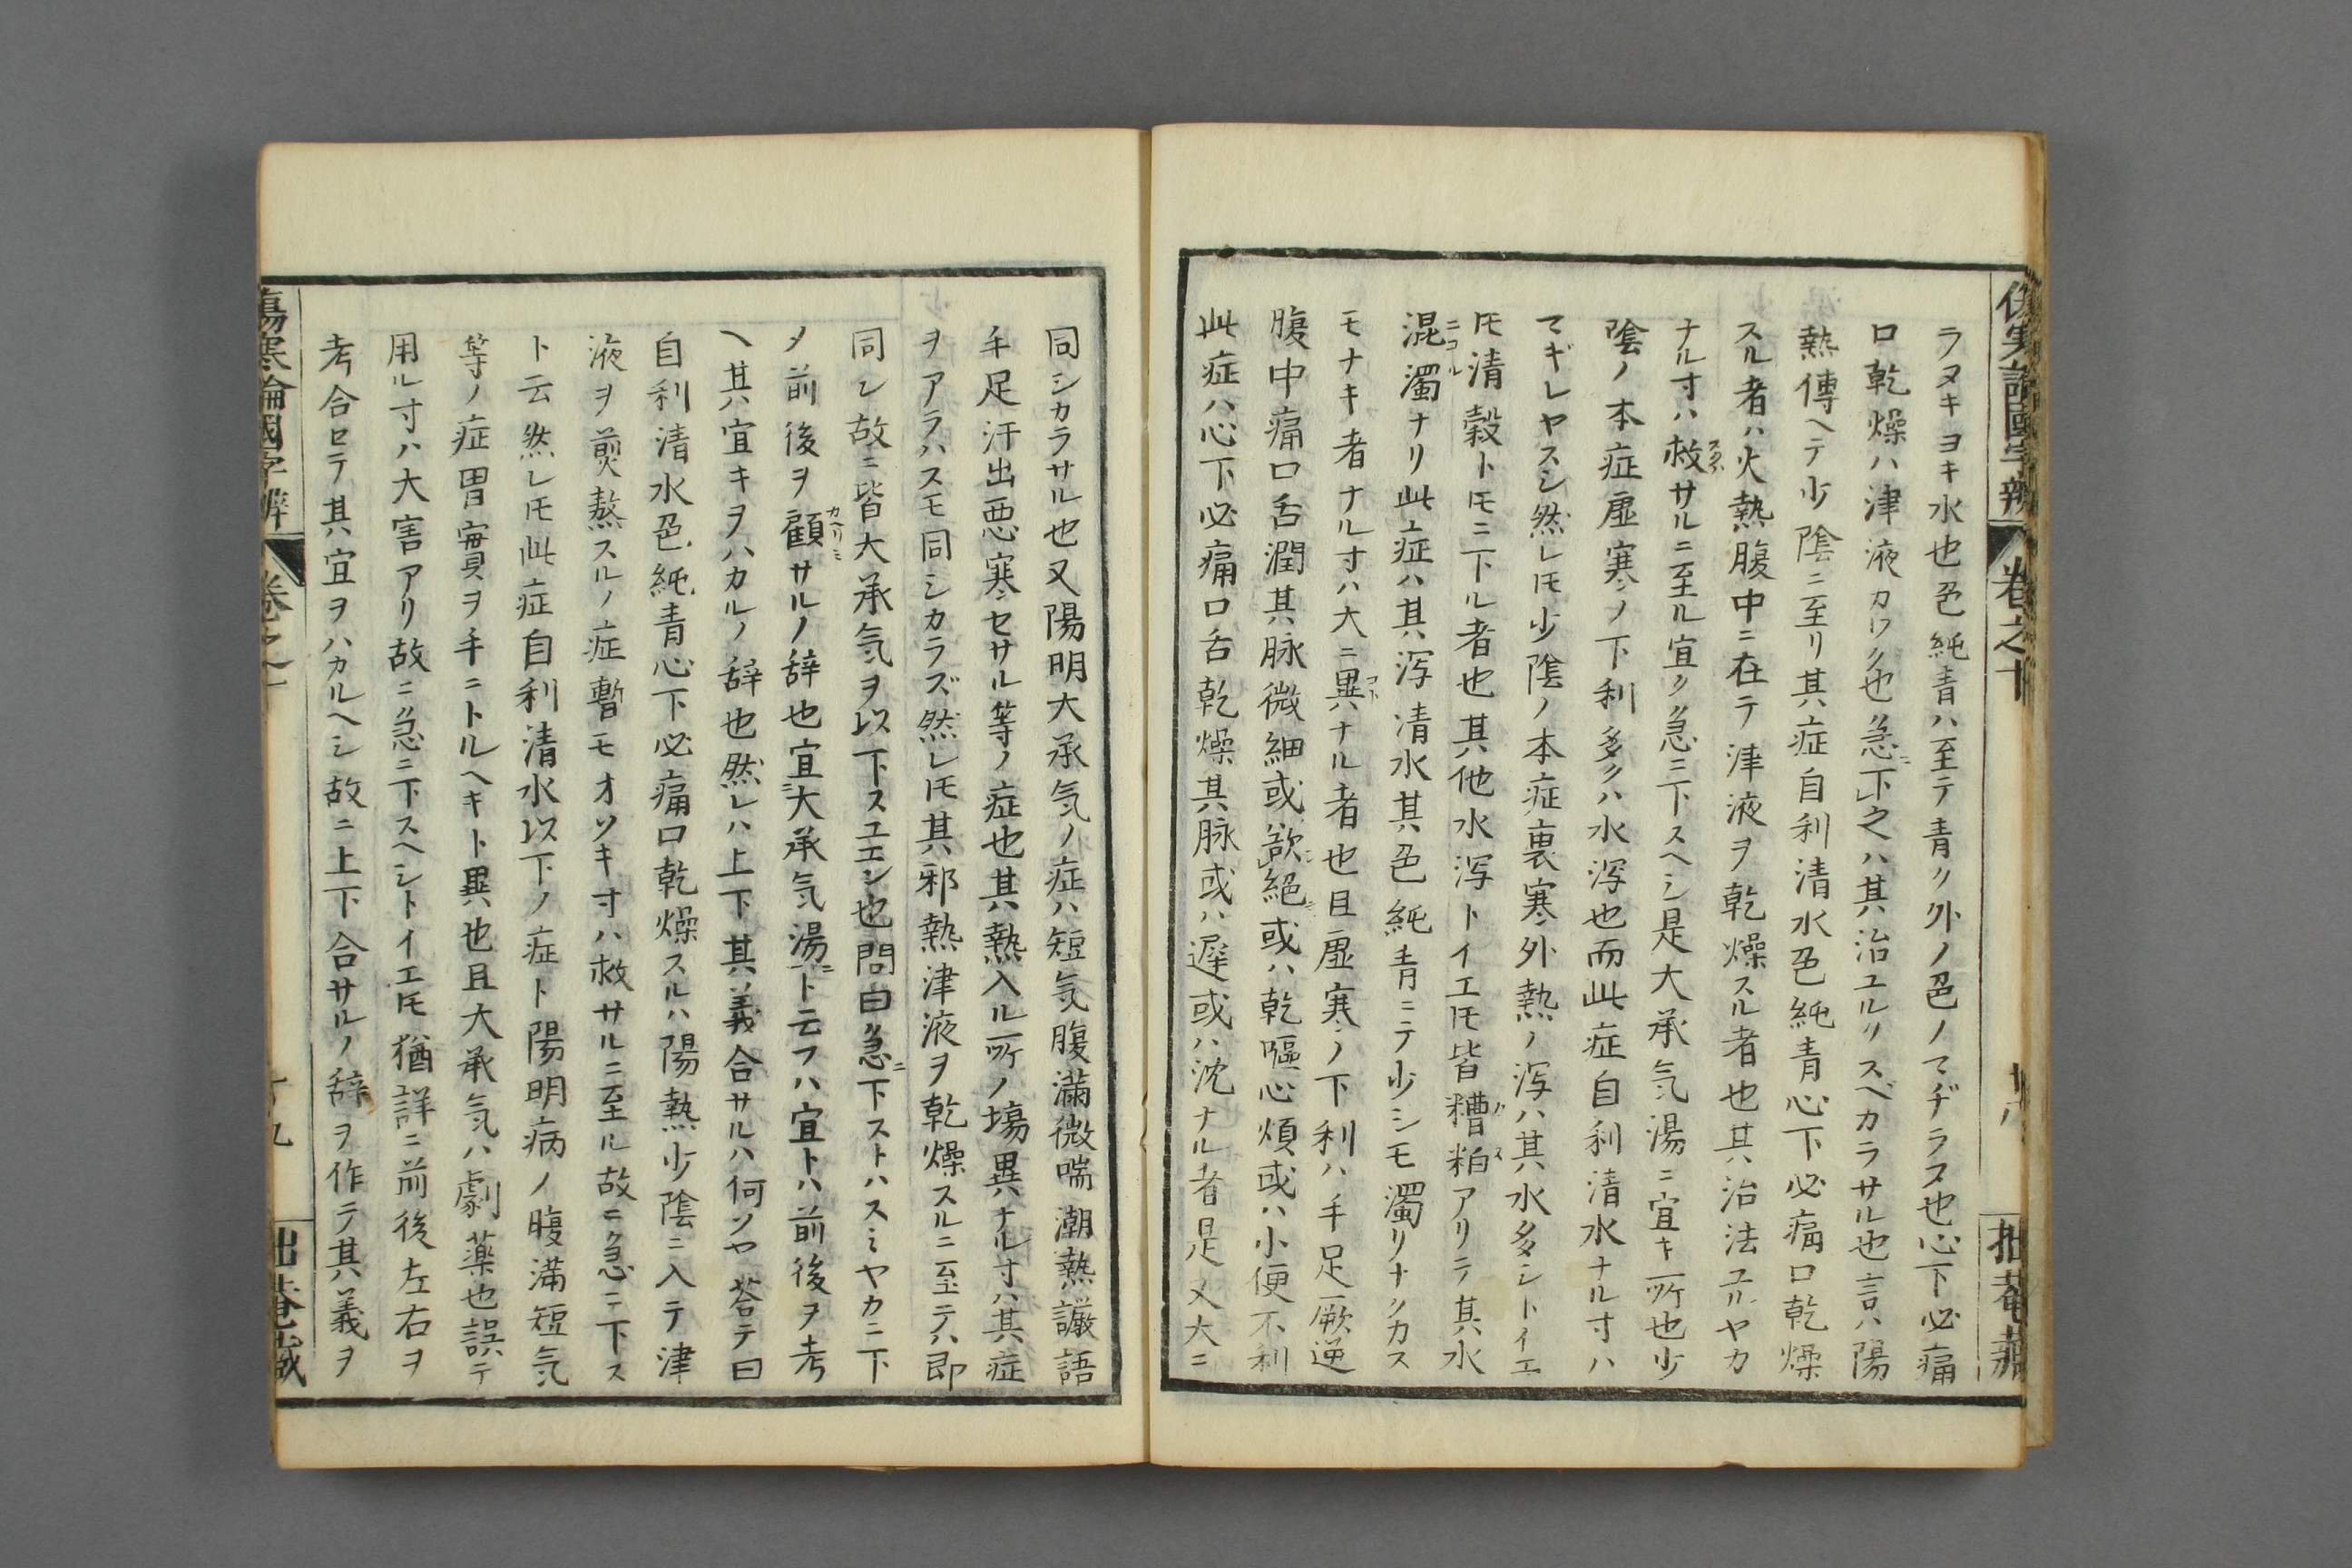 ラヌキヨキ水也色純青ハ至テ青ク外ノ色ノマヂラヌ也心下必痛
口乾燥ハ津液カワク也急ニ下之ハ其治ユルリスベカラサル也言ハ陽
熱傳ヘテ少陰ニ至リ其症自利清水色純青心下必痛口乾燥
スル者ハ火熱腹中ニ在テ津液ヲ乾燥スル者也其治法ユルヤカ
ナル寸ハ救サルニ至ル宜ク急ニ下スヘシ是大承気湯ニ宜キ所也少
陰ノ本症虚寒ノ下利多クハ水泻也而此症自利清水ナル寸ハ
マギレヤスシ然レ𪜈少陰ノ本症裏寒外熱ノ泻ハ其水多シトイエ
𪜈清穀ト𪜈ニ下ル者也其他水泻トイエ𪜈皆糟粕アリテ其水
混濁ナリ此症ハ其泻清水其色純青ニテ少シモ濁リナクカス
モナキ者ナル寸ハ大ニ異ナル者也且虚寒ノ下利ハ手足厥逆
腹中痛口舌潤其脉微細或欲絶或ハ乾嘔心煩或ハ小便不利
此症ハ心下必痛口舌乾燥其脉或ハ遲或ハ沈ナル者是又大ニ
同シカラサル也又陽明大承気ノ症ハ短気腹滿微喘潮熱譫語
手足汗出悪寒セサル等ノ症也其熱入ル所ノ塲異ナル寸ハ其症
ヲアラハスモ同シカラズ然レ𪜈其邪熱津液ヲ乾燥スルニ至テハ即
同シ故ニ皆大承気ヲ以下スユエン也問曰急ニ下ストハスミヤカニ下
メ前後ヲ顧サルノ辞也宜大承気湯ニト云フハ宜トハ前後ヲ考
ヘ其宜キヲハカルノ辞也然レハ上下其義合サルハ何ソヤ荅テ曰
自利清水色純青心下必痛口乾燥スルハ陽熱少陰ニ入テ津
液ヲ煎熬スルノ症暫モオソキ寸ハ救サルニ至ル故ニ急ニ下ス
ト云然レ𪜈此症自利清水以下ノ症ト陽明病ノ腹滿短気
等ノ症胃實ヲ手ニトルヘキト異也且大承気ハ劇薬也誤テ
用ル寸ハ大害アリ故ニ急ニ下スヘシトイエ𪜈猶詳ニ前後左右ヲ
考合セテ其宜ヲハカルヘシ故ニ上下合サルノ辞ヲ作テ其義ヲ
傷寒論國字辨
卷之十